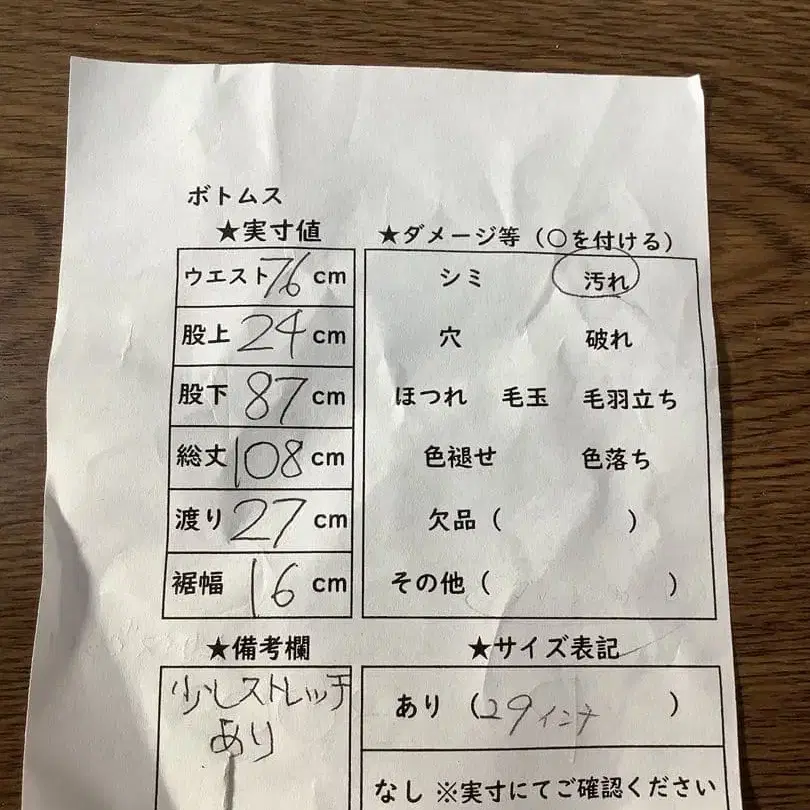 ボトムス
★実寸値
ウエスト 76 cm
股上 24 cm
股下 87 cm
総丈 108 cm
渡り 27 cm
裾幅 16 cm
★ダメージ等（○を付ける）
シミ 汚れ
穴 破れ
ほつれ 毛玉 毛羽立ち
色褪せ 色落ち
欠品（ ）
その他（ ）
★備考欄
少しストレッチ
あり
★サイズ表記
あり （29インチ ）
なし ※実寸にてご確認ください